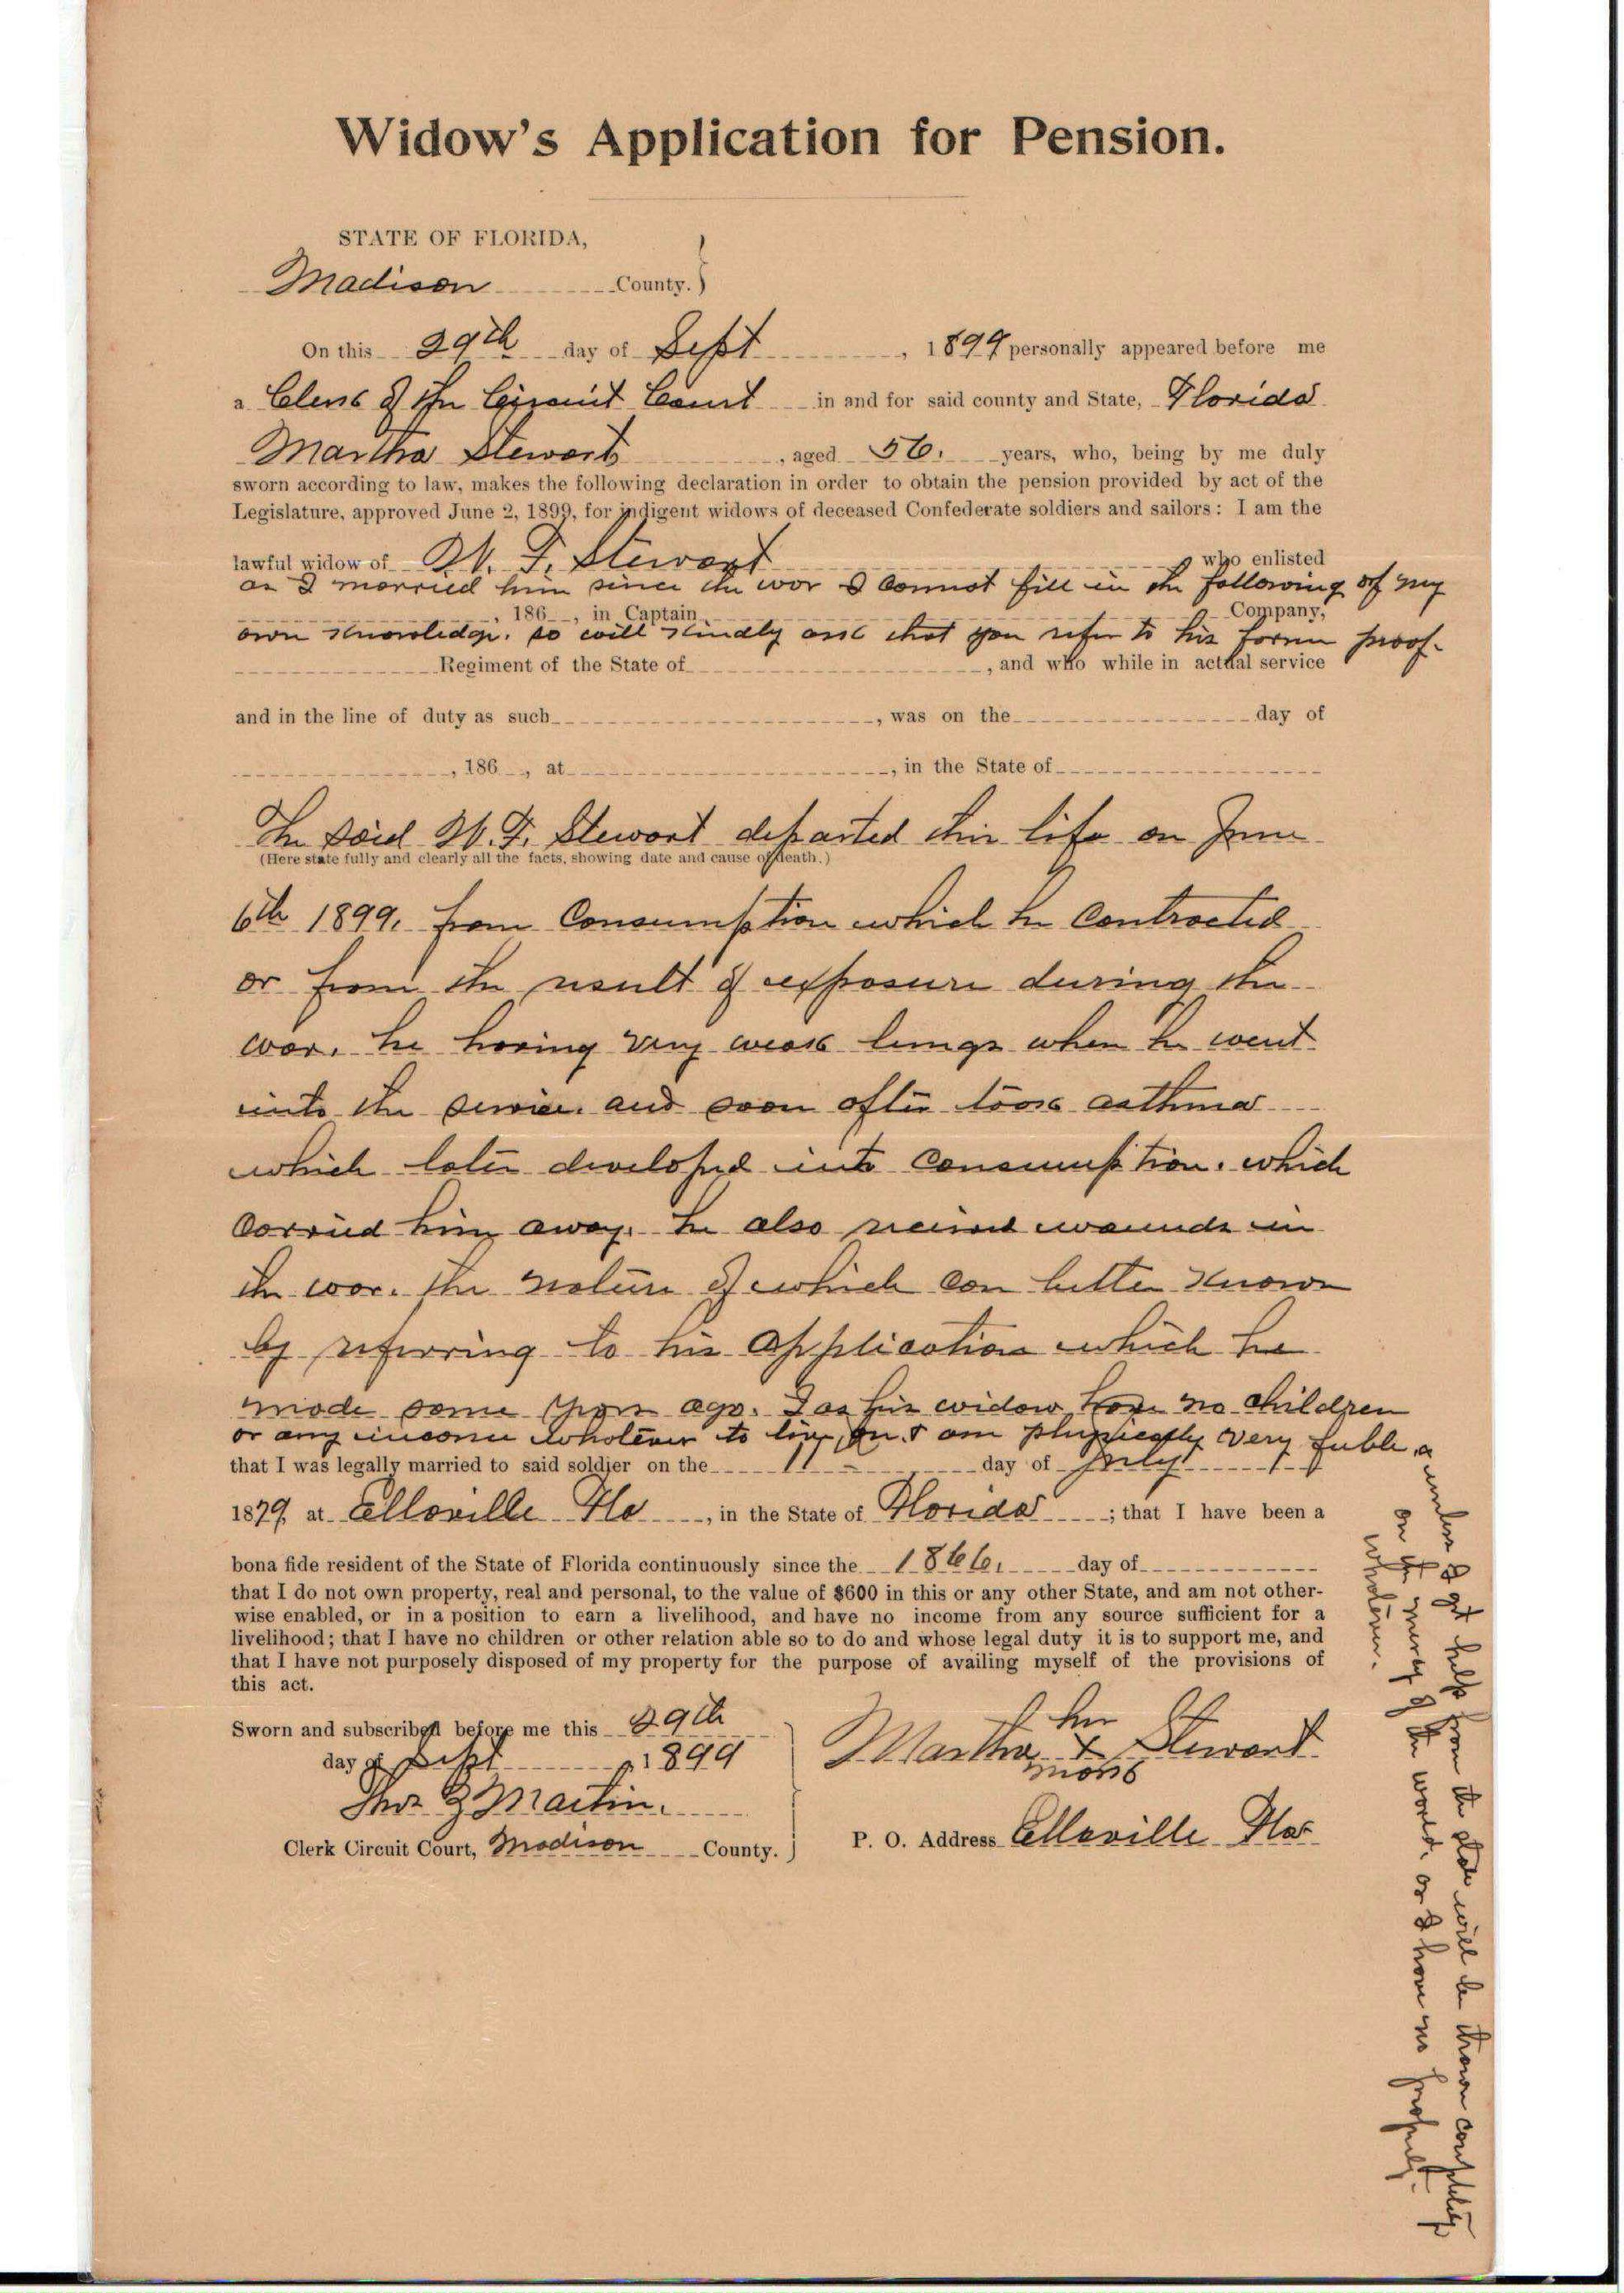 Widow's Application for Pension.
STATE OF FLORIDA,
Madison County.
On this 29th day of Sept , 1899 personally appeared before me
a Clerk of the Circuit Court in and for said county and State, Florida
Martha Stewart , aged 56. years, who, being by me duly
sworn according to law, makes the following declaration in order to obtain the pension provided by act of the
Legislature, approved June 2, 1899, for indigent widows of deceased Confederate soldiers and sailors: I am the
lawful widow of W. F. Stewart who enlisted
as I married him since the war I cannot fill in the following of my
, 186 , in Captain Company,
own knowledge. so will kindly ask that you refer to his former proof.
Regiment of the State of , and who while in actual service
and in the line of duty as such , was on the day of
, 186 , at , in the State of
The said W. F. Stewart departed this life on June
(Here state fully and clearly all the facts, showing date and cause of death.)
6th 1899. from Consumption which he Contracted
or from the result of exposure during the
war. he having very weak lungs when he went
into the service. and soon after took asthma
which later developed into Consumption. which
Carried him away. he also recived wounds in
the war. the nature of which can better known
by referring to his application which he
made some years ago. I as his widow have no children
or any income whatever to live on. & am physically very feeble, &
that I was legally married to said soldier on the 11 day of July
1879, at Ellaville Fla , in the State of Florida ; that I have been a
bona fide resident of the State of Florida continuously since the 1866. day of
that I do not own property, real and personal, to the value of $600 in this or any other State, and am not other-
wise enabled, or in a position to earn a livelihood, and have no income from any source sufficient for a
livelihood; that I have no children or other relation able so to do and whose legal duty it is to support me, and
that I have not purposely disposed of my property for the purpose of availing myself of the provisions of
this act.
Sworn and subscribed before me this 29th
day of Sept , 1899
Thos B Martin.
Clerk Circuit Court, Madison County.
her
Martha X Stewart
mark
P. O. Address Ellaville Fla
unless I get help from the state will be thrown completely
on the mercy of the world. as I have no property
whatever.